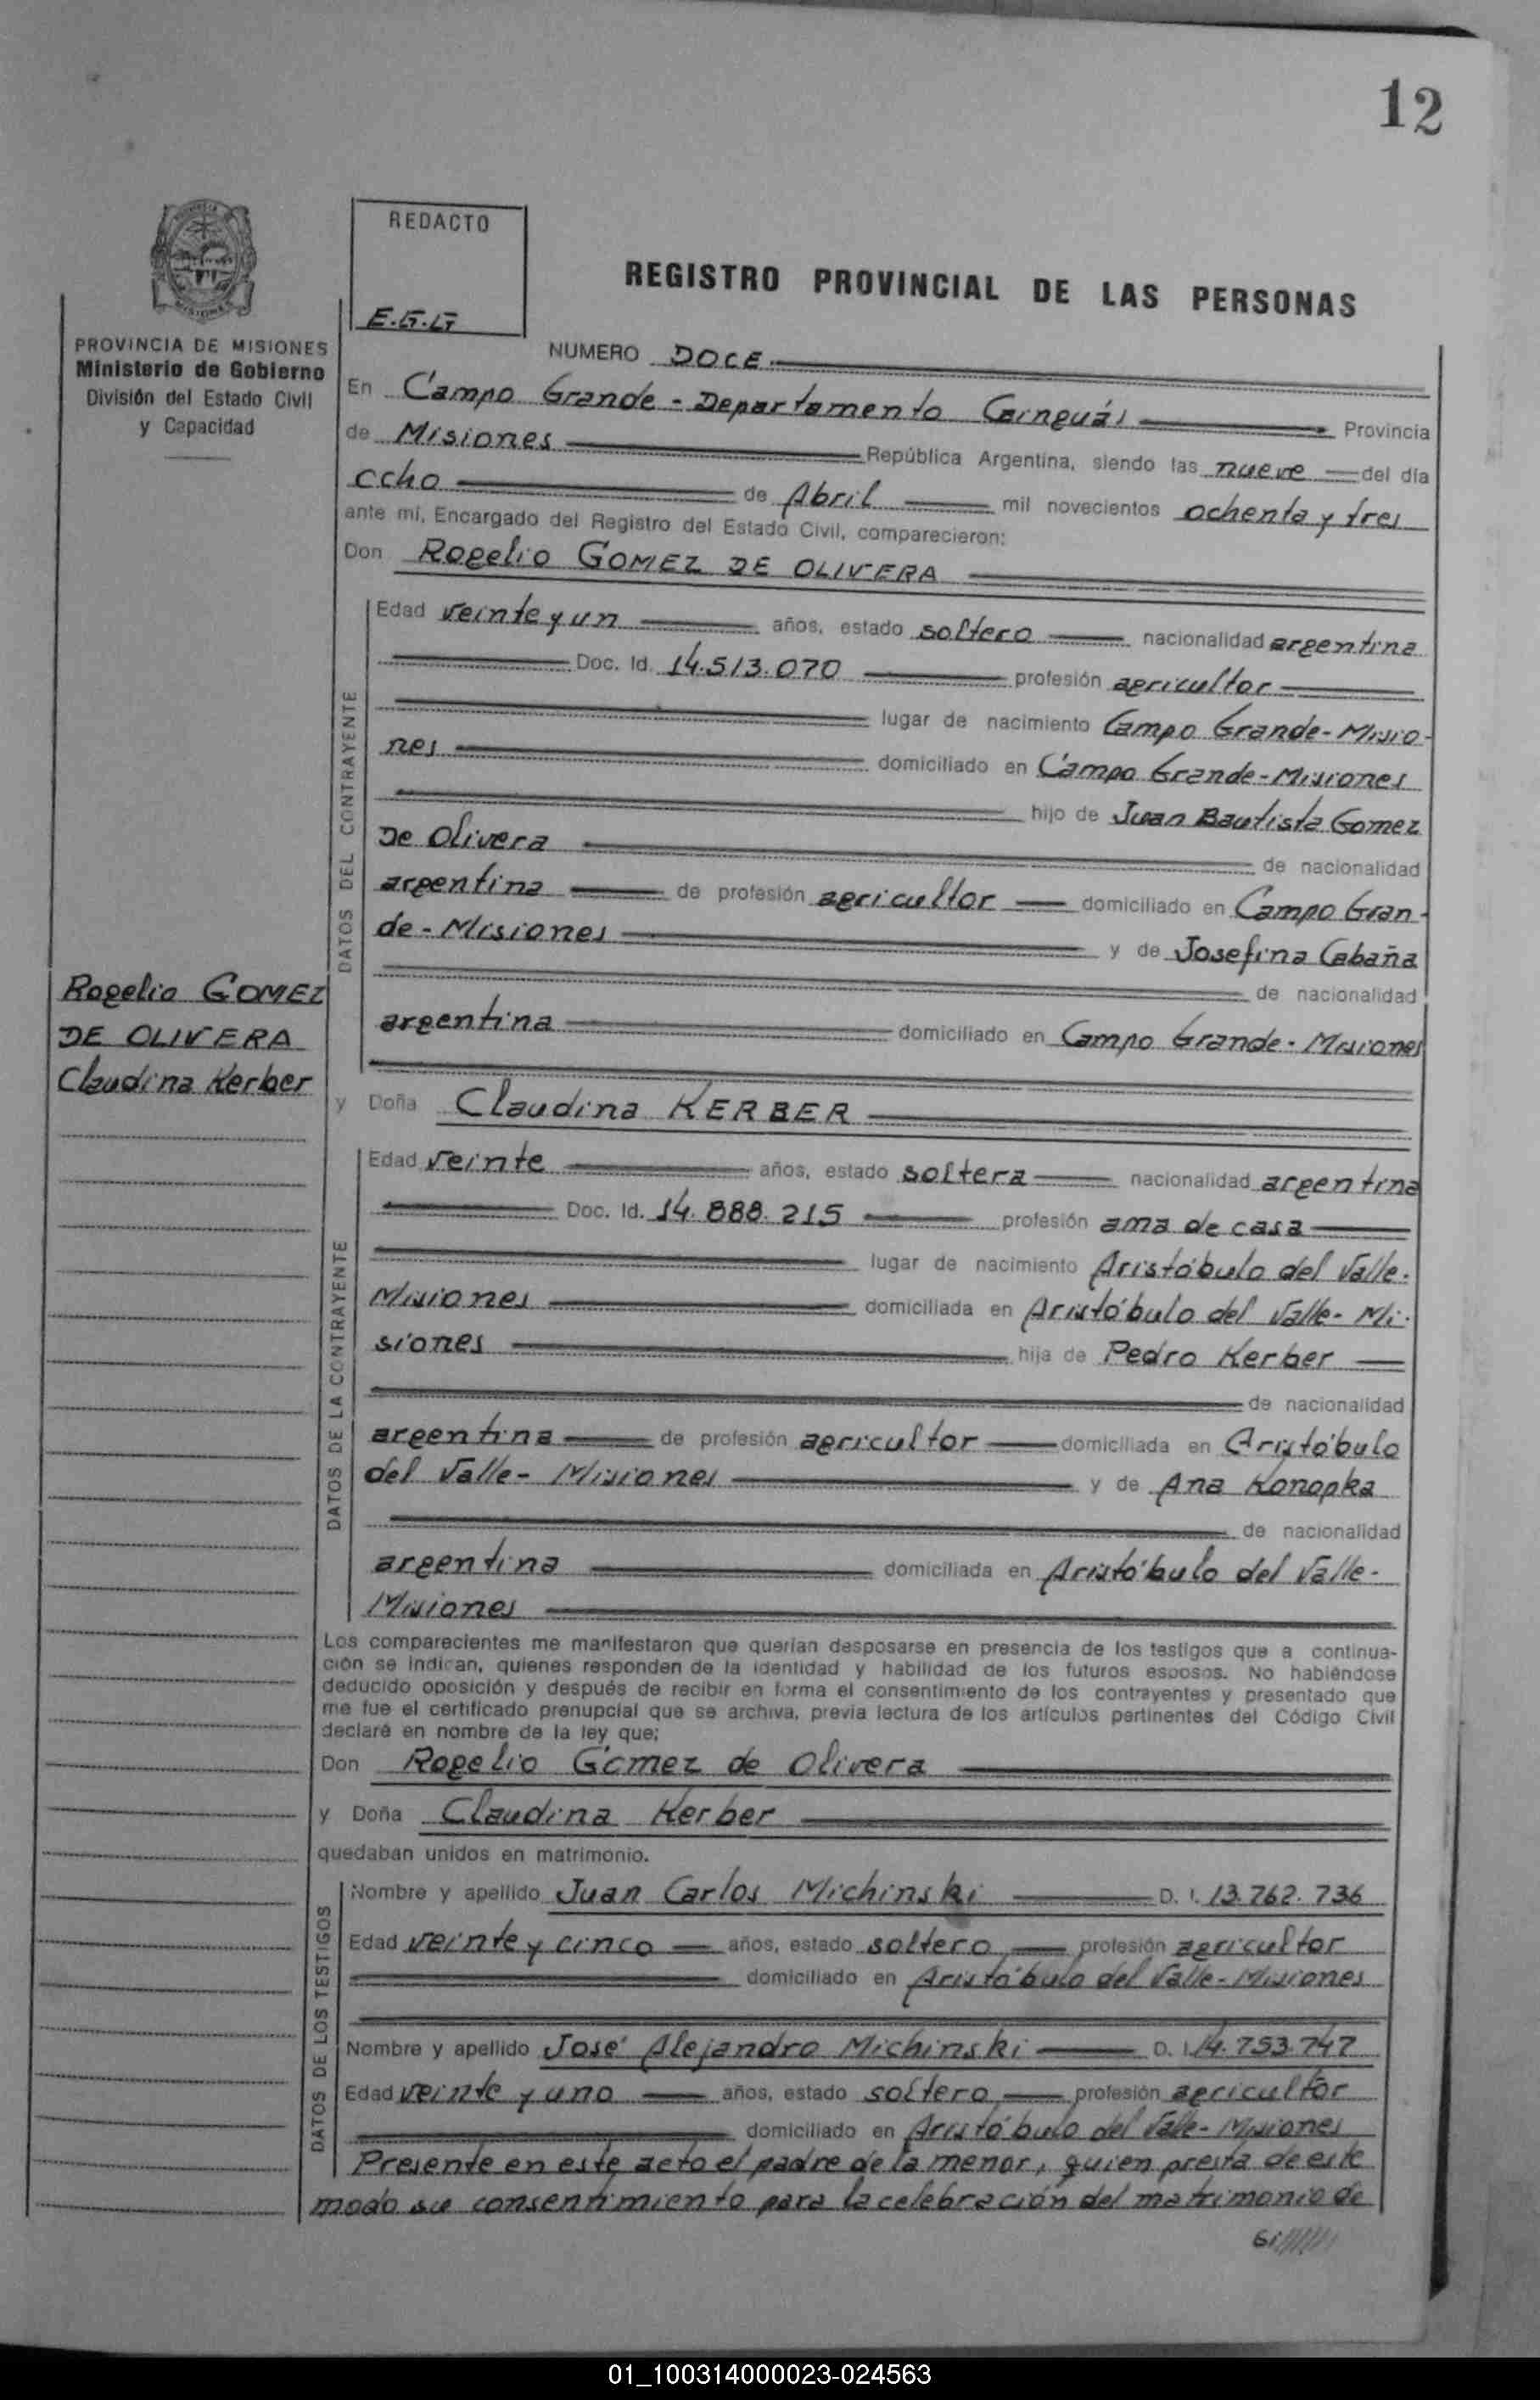 12
REDACTO
E.G.LT
REGISTRO PROVINCIAL DE LAS PERSONAS
PROVINCIA DE MISIONES
Ministerio de Gobierno
División del Estado Civil
y Capacidad
NUMERO DOCE
En Campo Grande - Departamento Cainguás Provincia
de Misiones República Argentina, siendo las nueve del día
ocho de Abril mil novecientos ochenta y tres
ante mí, Encargado del Registro del Estado Civil, comparecieron:
Don Rogelio GOMEZ DE OLIVERA
DATOS DEL CONTRAYENTE
Edad veinte y un años, estado soltero nacionalidad argentina
Doc. Id. 14.513.070 profesión agricultor
lugar de nacimiento Campo Grande-Misio-
nes domiciliado en Campo Grande-Misiones
hijo de Juan Bautista Gomez
De Olivera de nacionalidad
argentina de profesión agricultor domiciliado en Campo Gran-
de-Misiones y de Josefina Cabaña
de nacionalidad
argentina domiciliado en Campo Grande-Misiones
Rogelio GOMEZ
DE OLIVERA
Claudina Kerber
y Doña Claudina KERBER
DATOS DE LA CONTRAYENTE
Edad veinte años, estado soltera nacionalidad argentina
Doc. Id. 14.888.215 profesión ama de casa
lugar de nacimiento Aristóbulo del Valle-
Misiones domiciliada en Aristóbulo del Valle-Mi-
siones hija de Pedro Kerber
de nacionalidad
argentina de profesión agricultor domiciliada en Aristóbulo
del Valle-Misiones y de Ana Konopka
de nacionalidad
argentina domiciliada en Aristóbulo del Valle-
Misiones
Los comparecientes me manifestaron que querían desposarse en presencia de los testigos que a continua-
ción se indican, quienes responden de la identidad y habilidad de los futuros esposos. No habiéndose
deducido oposición y después de recibir en forma el consentimiento de los contrayentes y presentado que
me fue el certificado prenupcial que se archiva, previa lectura de los artículos pertinentes del Código Civil
declaré en nombre de la ley que:
Don Rogelio Gómez de Olivera
y Doña Claudina Kerber
quedaban unidos en matrimonio.
DATOS DE LOS TESTIGOS
Nombre y apellido Juan Carlos Michinski D. I. 13.762.736
Edad veinte y cinco años, estado soltero profesión agricultor
domiciliado en Aristóbulo del Valle-Misiones
Nombre y apellido José Alejandro Michinski D. I. 14.753.747
Edad veinte y uno años, estado soltero profesión agricultor
domiciliado en Aristóbulo del Valle-Misiones
Presente en este acto el padre de la menor, quien presta de este
modo su consentimiento para la celebración del matrimonio de
01_100314000023-024563